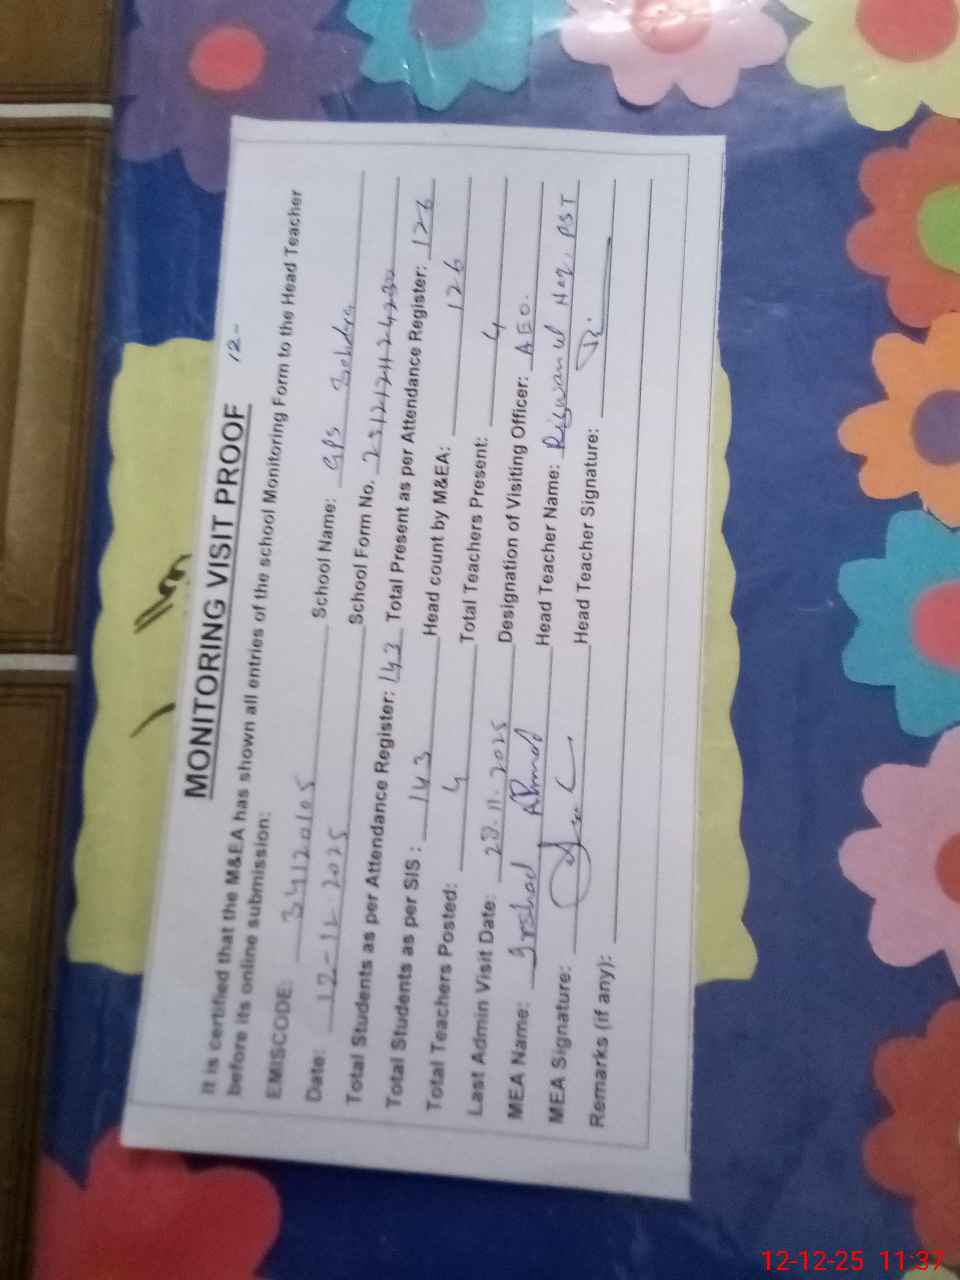 12-
MONITORING VISIT PROOF
It is certified that the M&EA has shown all entries of the school Monitoring Form to the Head Teacher
before its online submission:
EMISCODE: 34120105 School Name: GPS
Date: 12-12-2025 School Form No.
Total Students as per Attendance Register: 143 Total Present as per Attendance Register: 126
Total Students as per SIS : 143 Head count by M&EA: 126
Total Teachers Posted: 4 Total Teachers Present: 4
Last Admin Visit Date: 28-11-2025 Designation of Visiting Officer: AEO.
MEA Name: Irshad Ahmad Head Teacher Name: Rizwan ul Haq, PST
MEA Signature: Head Teacher Signature:
Remarks (if any):
12-12-25 11:37